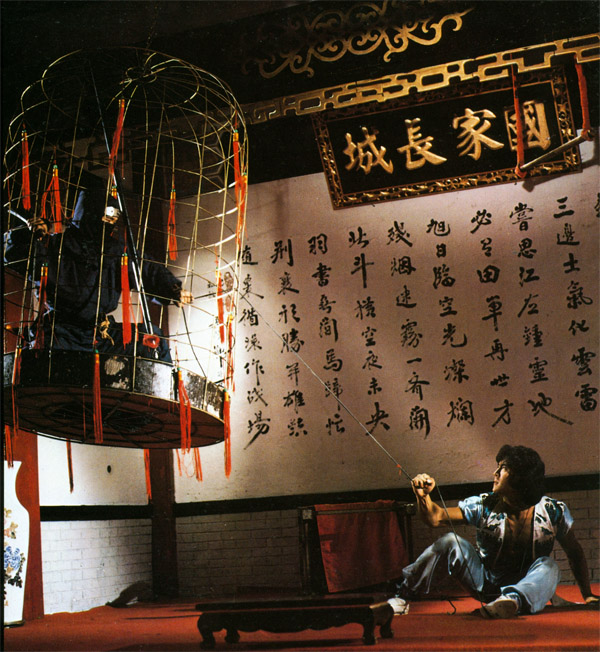 國家長城
三邊士氣化雲雷
嘗思江左鍾靈地
必有田單再世才
旭日臨空光燦爛
殘烟迷霧一齊開
北斗橫空夜未央
羽書馬蹄忙
荊襄形勝并雄
循環作戰場